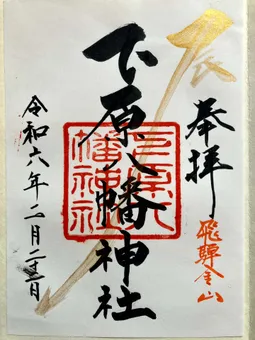 辰
奉拝
飛騨金山
下原八幡神社
下原八幡神社
令和六年二月二十三日